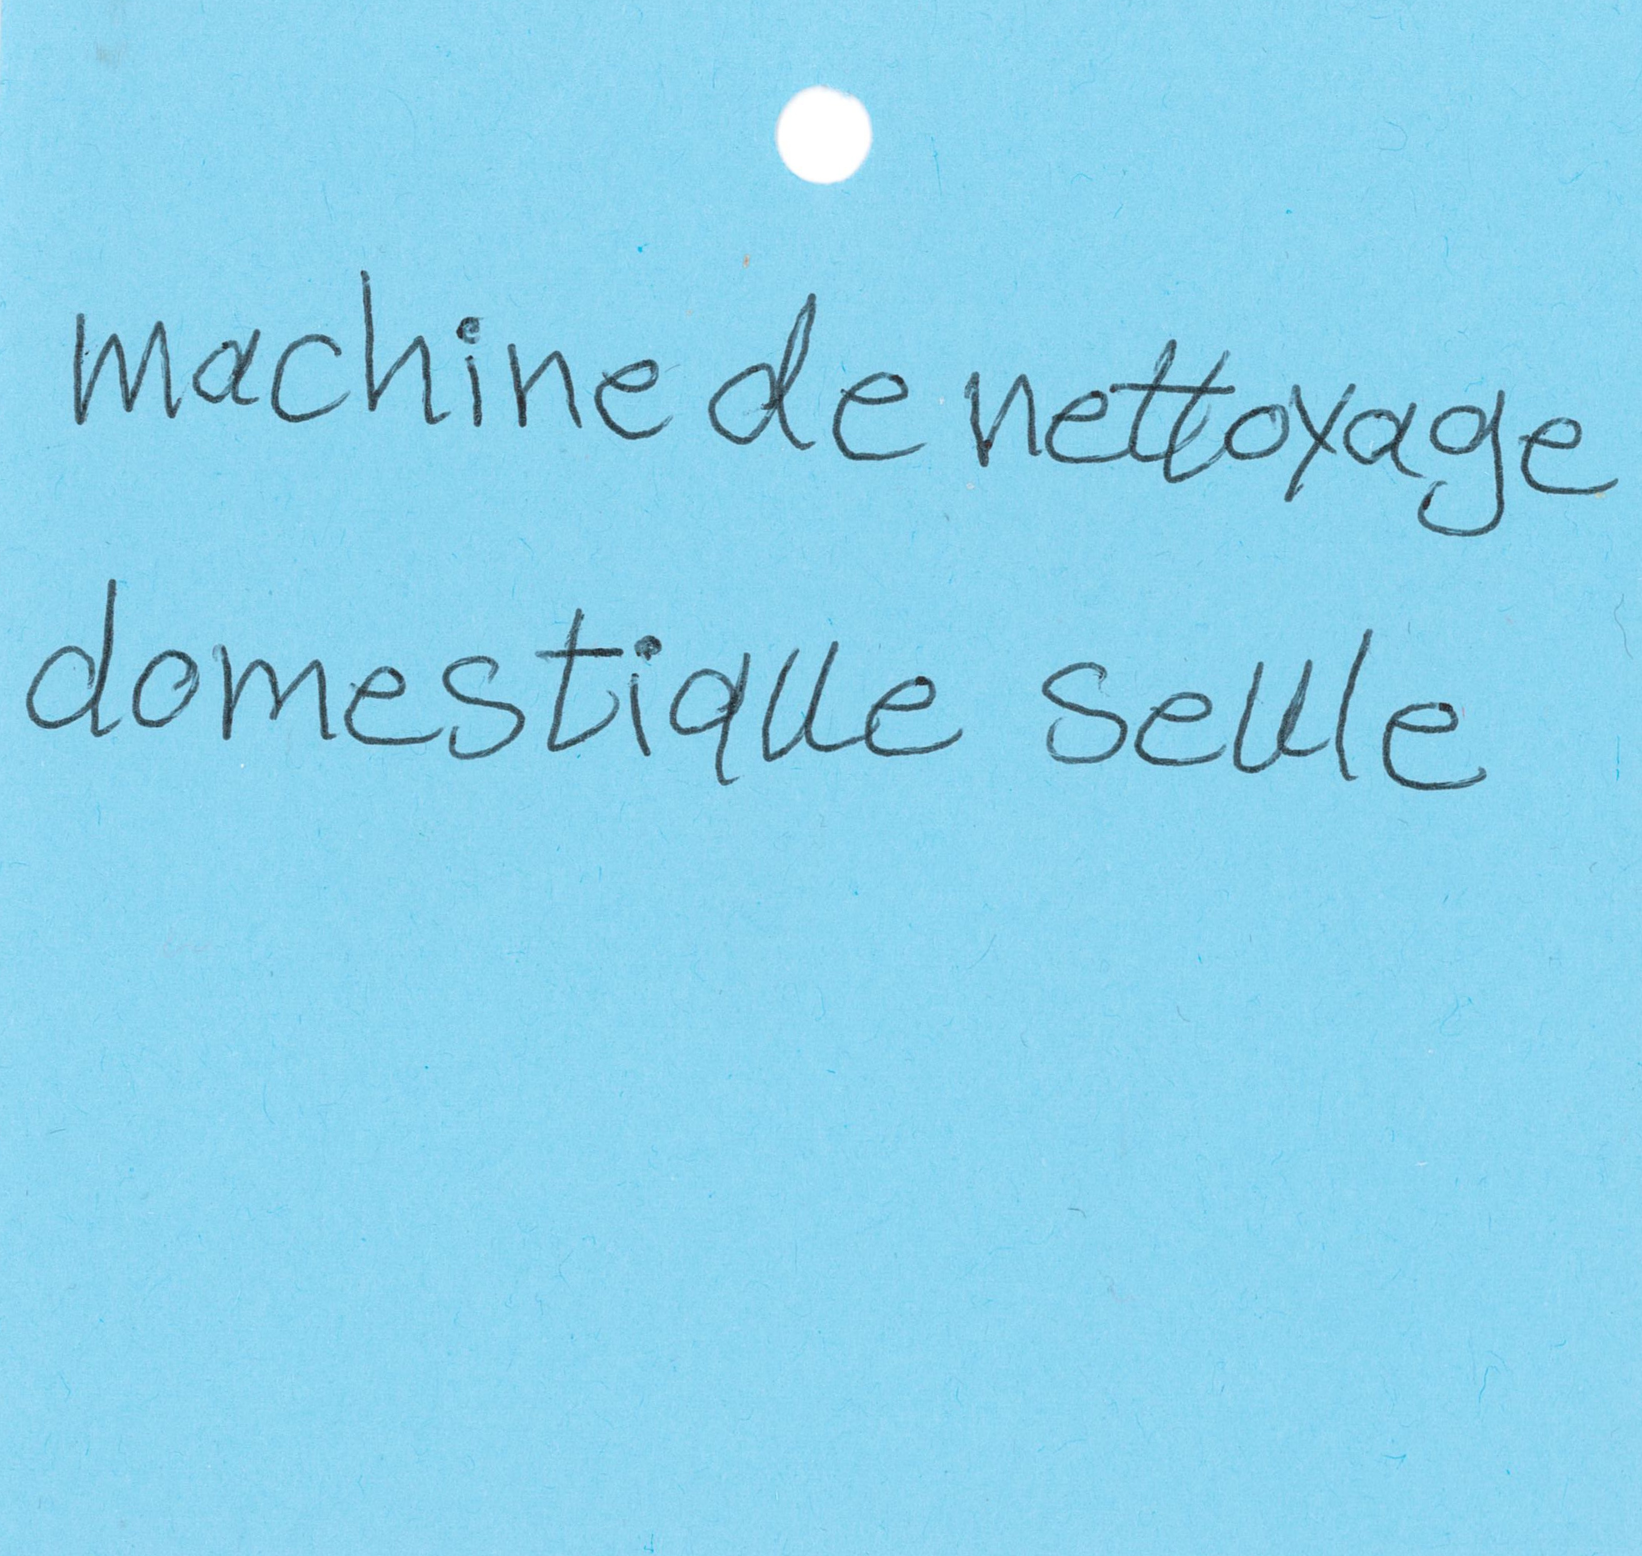 machine de nettoyage
domestique seule